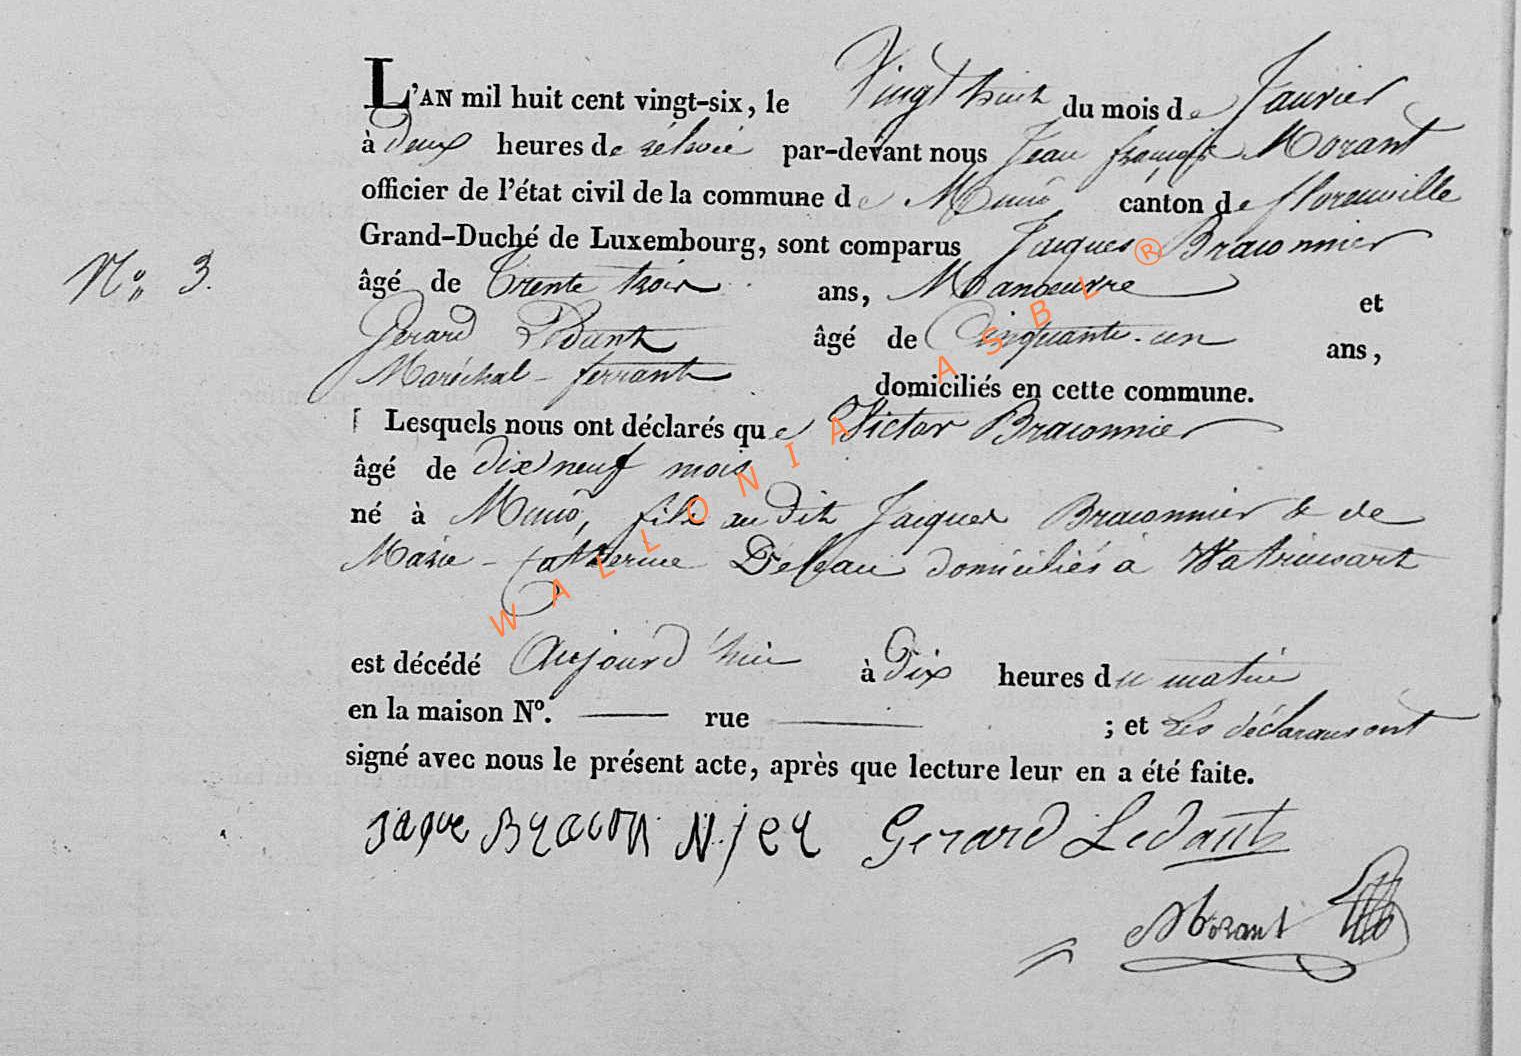 L'AN mil huit cent vingt-six, le Vingt huit du mois de Janvier
à deux heures de rélevée par-devant nous Jean françois Morant
officier de l'état civil de la commune de Muno canton de florenville
Grand-Duché de Luxembourg, sont comparus Jacques Braconnier
N° 3.
âgé de Trente trois ans, Manoeuvre et
Gerard Ledant âgé de Cinquante-un ans,
Maréchal-ferrant domiciliés en cette commune.
Lesquels nous ont déclarés que Victor Braconnier
âgé de dix neuf mois
né à Muno, fils au dit Jacques Braconnier & de
Marie-Catherine domiciliés à Watrinsart
est décédé Aujourd'hui à Dix heures du matin
en la maison N°. — rue — ; et les déclarans ont
signé avec nous le présent acte, après que lecture leur en a été faite.
jaque BRacon Nier Gerard Ledant
Morant
WALLONIA ASBL ®